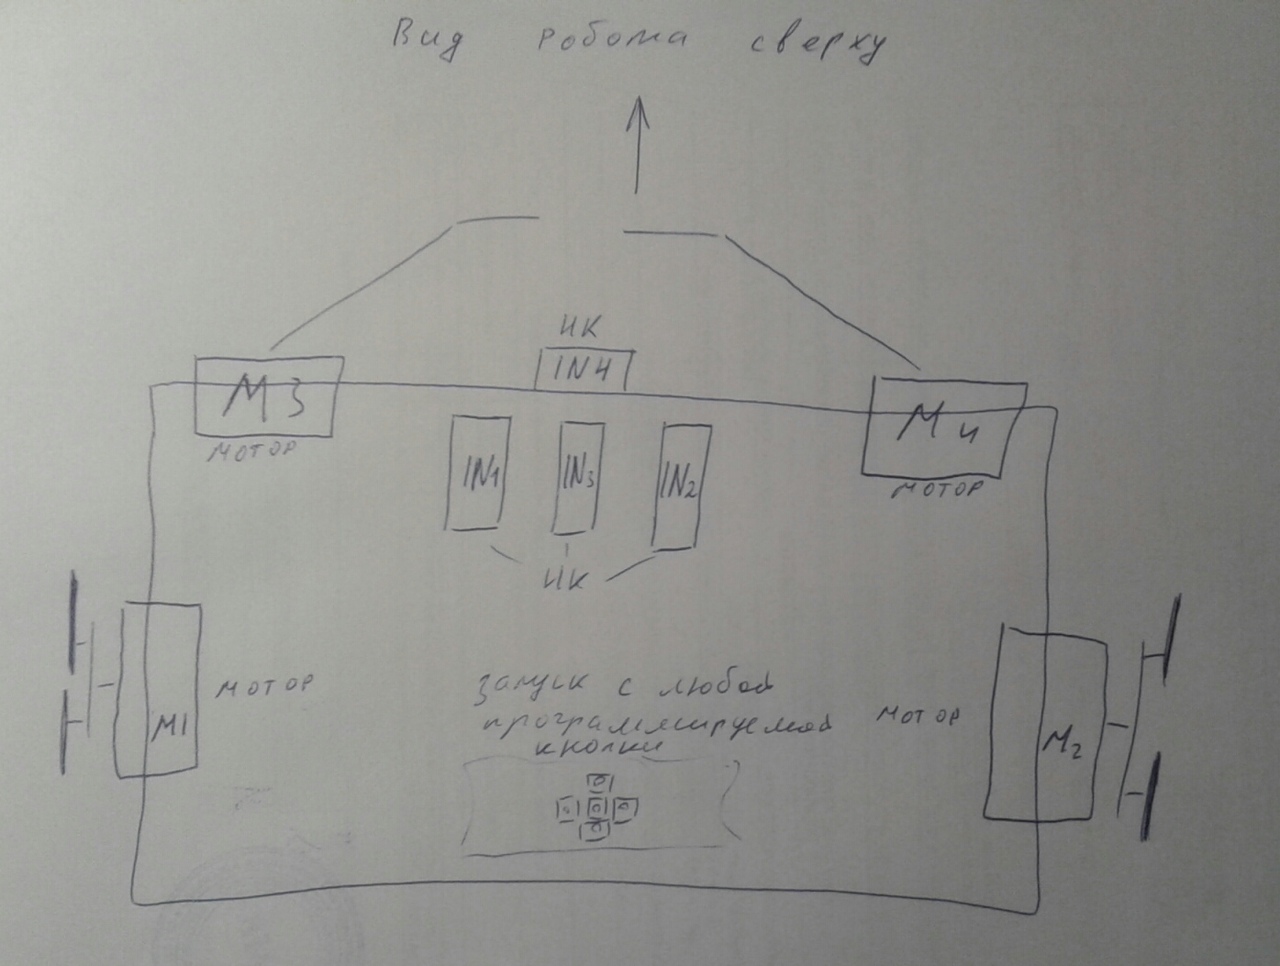 Вид робота сверху
ИК
IN4
М3
мотор
М4
мотор
IN1
IN3
IN2
ИК
М1
мотор
запуск с любой
программируемой
кнопки
мотор
М2